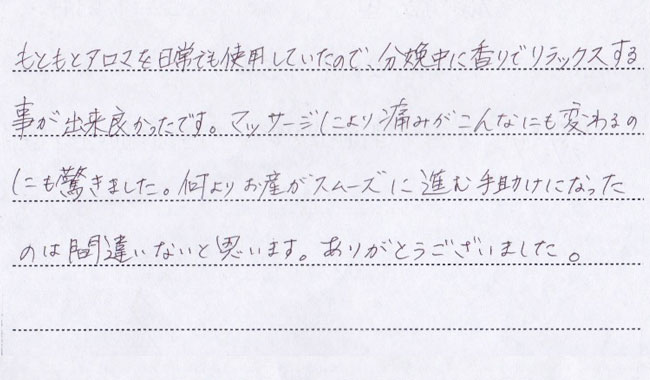 もともとアロマを日常でも使用していたので、分娩中に香りでリラックスする
事が出来良かったです。マッサージにより痛みがこんなにも変わるの
にも驚きました。何よりお産がスムーズに進む手助けになった
のは間違いないと思います。ありがとうございました。